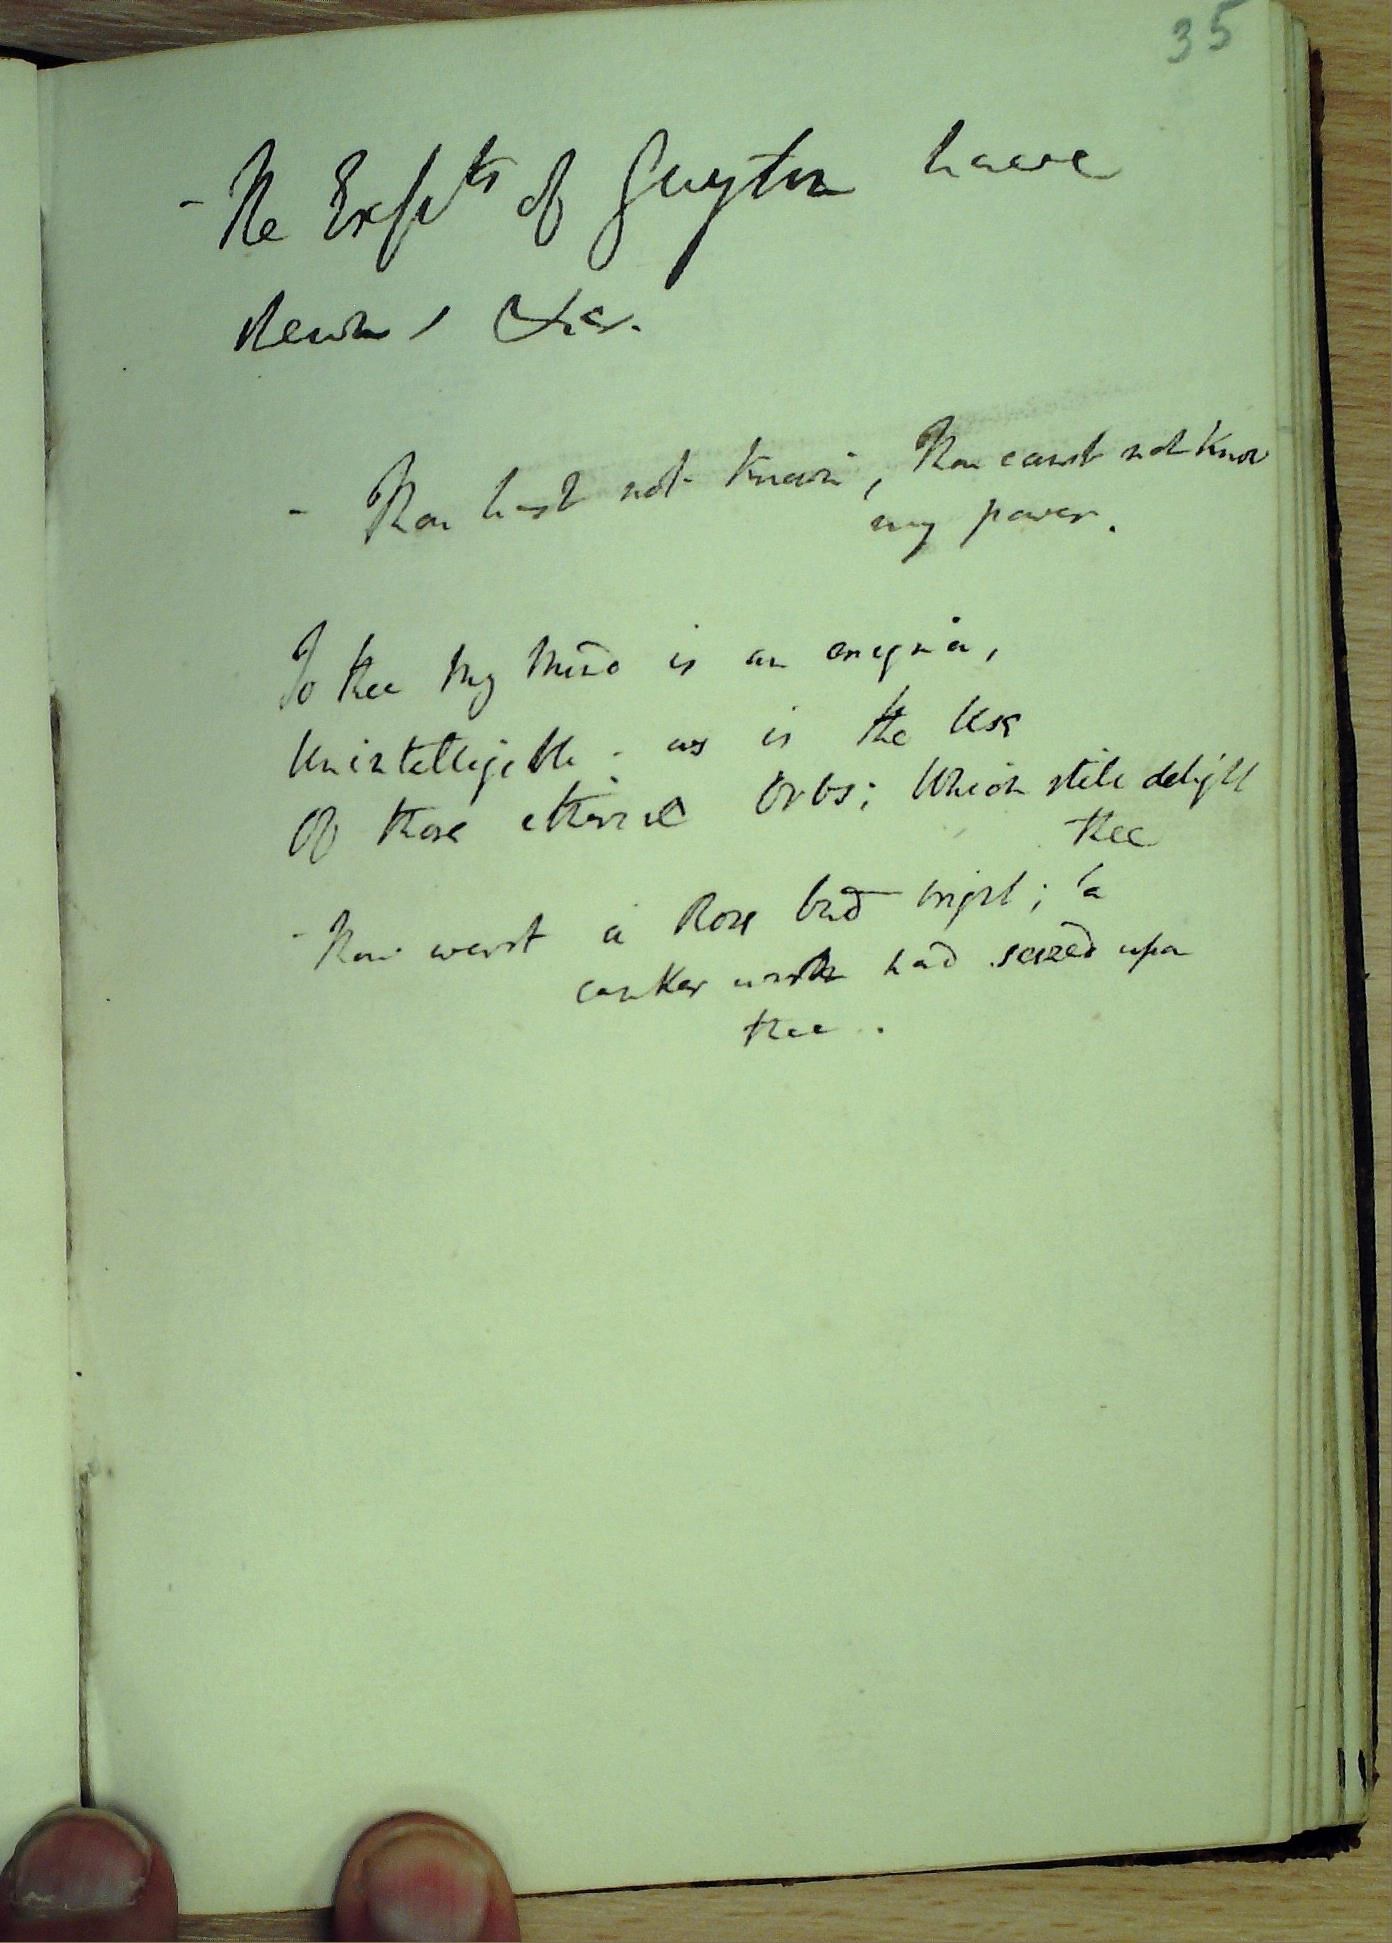 35
- The Exp.ts of Guyton have
shewn,
- Thou hast not known, Thou canst not know
my power.
To thee My Mind is an enigma,
Unintelligible - as is the Use
Of those etherial Orbs; Which still delight
thee
- Thou wast a Rose bud bright; 'a
canker worm had seized upon
thee.